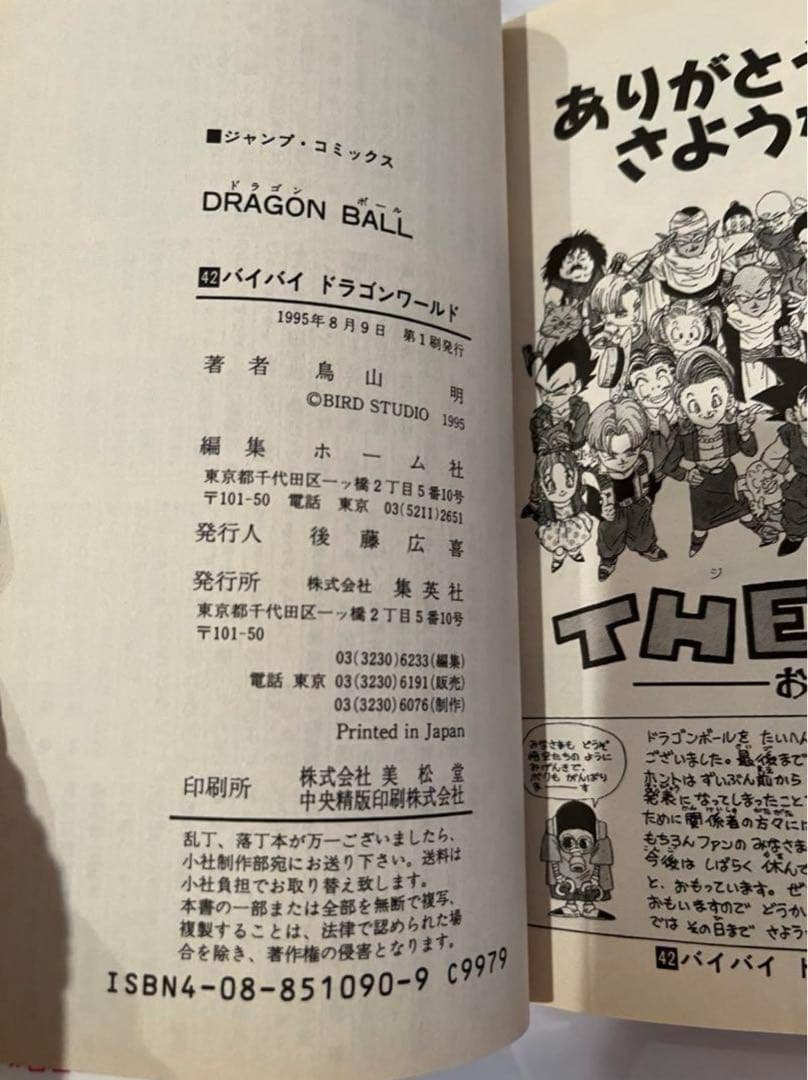 ■ジャンプ・コミックス
ドラゴン ボール
DRAGON BALL
42バイバイ ドラゴンワールド
1995年8月9日 第1刷発行
著者 鳥山 明
©BIRD STUDIO 1995
編集 ホーム社
東京都千代田区一ッ橋2丁目5番10号
〒101-50 電話 東京 03(5211)2651
発行人 後藤広喜
発行所 株式会社 集英社
東京都千代田区一ッ橋2丁目5番10号
〒101-50
03(3230)6233(編集)
電話 東京 03(3230)6191(販売)
03(3230)6076(制作)
Printed in Japan
印刷所 株式会社 美松堂
中央精版印刷株式会社
乱丁、落丁本が万一ございましたら、
小社制作部宛にお送り下さい。送料は
小社負担でお取り替え致します。
本書の一部または全部を無断で複写、
複製することは、法律で認められた場
合を除き、著作権の侵害となります。
ISBN4-08-851090-9 C9979
ありがとう
さよう
ジ
THE
お
みなさまも どうぞ
悟空たちの ように
おげんきで。
ボクも がんばり
まーーーす
ドラゴンボールを たいへん
ございました。最後まで
ホントは ずいぶん前から
発表に なってしまったこと
ために 関係者の方々に
もちろん ファンの みなさま
今後は しばらく 休んで
と、おもっています。ぜ
おもいますので どうか
では その日まで さよう
42バイバイ